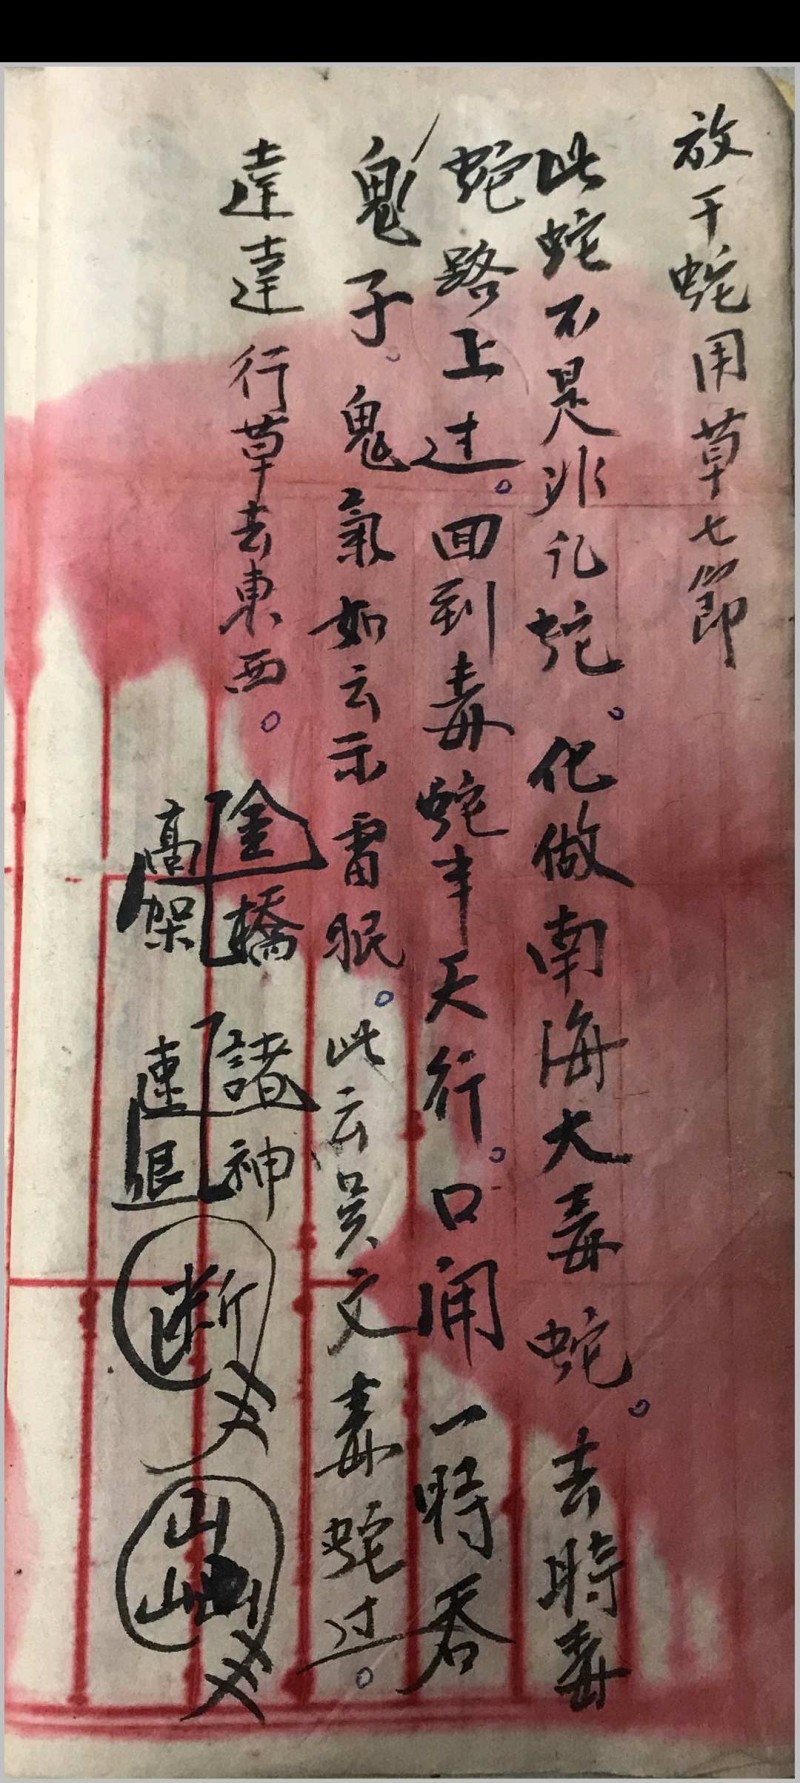 放干蛇用草七節
此蛇不是非凡蛇。化做南海大毒蛇。去時毒
蛇路上过。回到毒蛇半天行。口闹一時吞
鬼子。鬼氣如云示雷眠。此云吴文毒蛇过。
達達行草去東西。
金橋
高架
諸神
速退
断
山
山山